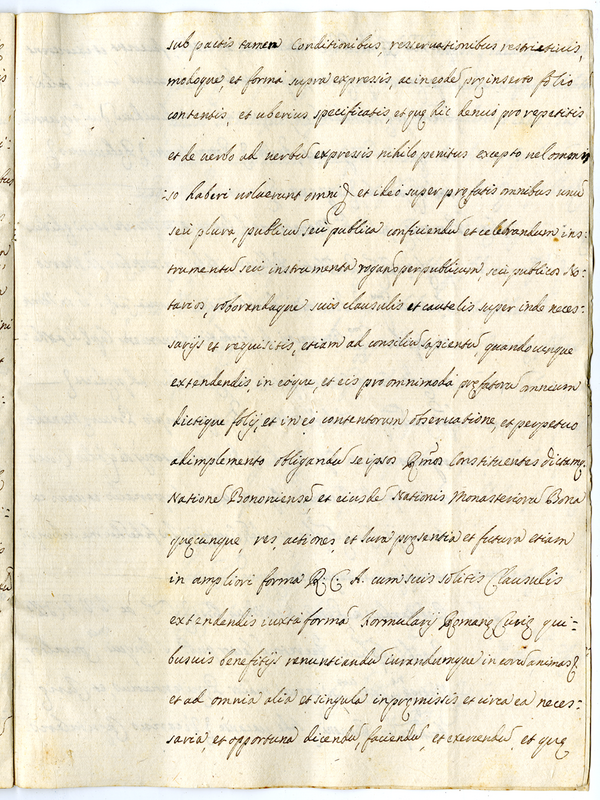 sub pactis tamen Conditionibus, reservationibus restrictivis,
modoque, et forma supra expressis, ac in eodē pręinserto folio
contentis, et uberius specificatis, et quę hic denuò pro repetitis
et de verbo ad verbū expressis nihilo penitus excepto vel omis-
so haberi voluerunt et ideo super pręfatis omnibus unū
seù plura, publicū seù publica conficiendū et celebrandum ins=
trumentū seù instrumenta rogans per publicum seù publicos No=
tarios, roborandaque suis clausulis et cautelis super inde neces=
sarijs et requisitis, etiam ad consiliū sapientū, quandocunque
extendendis, in eoque, et eis pro omnimoda pręfatorū omnium
dictique folij, et in eo contentorum observatione, et perpetuo
adimplemento obligandū se ipsos Rmos Constituentes dictamq.
Nationē Bononiensē, et eiusdē Nationis Monasteriorū Bona
quęcunque, res, actiones, et Iura pręsentia et futura etiam
in ampliori forma R. C. A. cum suis solitis Clausulis
extendendis iuxta formā Formularij Romanę Curię qui=
busuis benefitijs renuntiandū iurandumque in
et ad omnia alia et singula in pręmissis et circa ea neces=
saria, et opportuna dicendū, faciendū, et exercendū, et quę